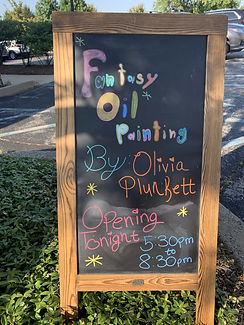 Fantasy
Oil
Painting
By: Olivia
Plunkett
Opening
Tonight 5:30pm
to
8:30pm